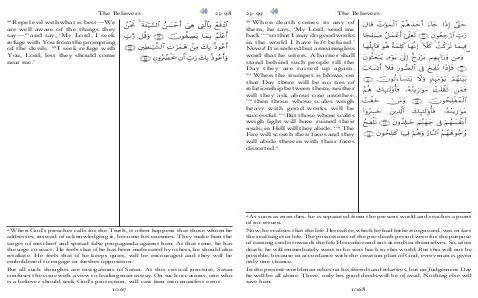 The Believers
23: 98
⁹⁶ Repel evil with what is best—We
are well aware of the things they
say—ᵃ ⁹⁷ and say, ‘My Lord, I seek
refuge with You from the prompting
of the devils. ⁹⁸ I seek refuge with
You, Lord, lest they should come
near me.’
ٱدْفَعْ بِٱلَّتِى هِىَ أَحْسَنُ ٱلسَّيِّئَةَ نَحْنُ
أَعْلَمُ بِمَا يَصِفُونَ ۝ وَقُل رَّبِّ
أَعُوذُ بِكَ مِنْ هَمَزَٰتِ ٱلشَّيَٰطِينِ ۝
وَأَعُوذُ بِكَ رَبِّ أَن يَحْضُرُونِ ۝
ᵃ When God’s preacher calls for the Truth, it often happens that those whom he
addresses, instead of acknowledging it, become his enemies. They make him the
target of mischief and spread false propaganda against him. At that time, he has
the urge to react. He feels that if he has been maltreated by others, he should also
retaliate. He feels that if he keeps quiet, will be encouraged and they will be
emboldened to engage in further opposition.
But all such thoughts are instigations of Satan. At this critical juncture, Satan
confuses the issue with a view to leading man astray. On such occasions, one who
is a believer should seek God’s protection, will cast him into manifest error.
1067
23: 99
The Believers
⁹⁹ When death comes to any of
them, he says, ‘My Lord, send me
back ¹⁰⁰ so that I may do good works
in the world I have left behind.’
Never! It is indeed but a meaningless
word that he utters. A barrier shall
stand behind such people till the
Day they are raised up again.ᵃ
¹⁰¹ When the trumpet is blown, on
that Day there will be no ties of
relationship between them; neither
will they ask about one another:
¹⁰² then those whose scales weigh
heavy with good works will be
successful. ¹⁰³ But those whose scales
weigh light will have ruined their
souls; in Hell will they abide. ¹⁰⁴ The
Fire will scorch their faces and they
will abide therein with their faces
distorted.ᵇ
حَتَّىٰٓ إِذَا جَآءَ أَحَدَهُمُ ٱلْمَوْتُ قَالَ
رَبِّ ٱرْجِعُونِ ۝ لَعَلِّىٓ أَعْمَلُ صَٰلِحًا
فِيمَا تَرَكْتُ كَلَّآ إِنَّهَا كَلِمَةٌ هُوَ قَآئِلُهَا
وَمِن وَرَآئِهِم بَرْزَخٌ إِلَىٰ يَوْمِ يُبْعَثُونَ
۝ فَإِذَا نُفِخَ فِى ٱلصُّورِ فَلَآ أَنسَابَ
بَيْنَهُمْ يَوْمَئِذٍ وَلَا يَتَسَآءَلُونَ ۝
فَمَن ثَقُلَتْ مَوَٰزِينُهُۥ فَأُو۟لَٰٓئِكَ هُمُ
ٱلْمُفْلِحُونَ ۝ وَمَنْ خَفَّتْ
مَوَٰزِينُهُۥ فَأُو۟لَٰٓئِكَ ٱلَّذِينَ خَسِرُوٓا۟
أَنفُسَهُمْ فِى جَهَنَّمَ خَٰلِدُونَ ۝ تَلْفَحُ
وُجُوهَهُمُ ٱلنَّارُ وَهُمْ فِيهَا كَٰلِحُونَ ۝
ᵃ As soon as man dies, he is separated from the present world and reaches a point
of no return.
Now, he realises that the life Hereafter, which he had hitherto ignored, was in fact
the real stage in life. The possessions of the pre-death period were for the purpose
of earning credit towards the life Hereafter and not as ends in themselves. So, after
death, he will immediately want to be sent back to this world. But this will not be
possible, because in accordance with the creation plan of God, every man is given
only one chance.
In the present world man relies on his friends and relatives, but on Judgement Day
he will be all alone. There, only his good deeds will be of avail. Nothing else will
save him.
1068